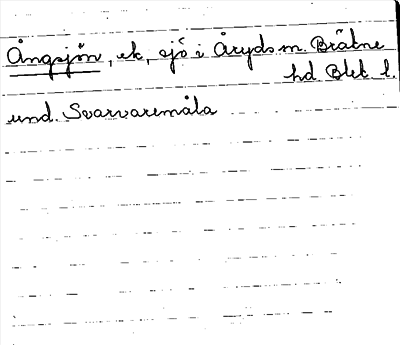 Ångsjön, ek, sjö i Åryds sn. Bräkne
hd Blek l.
und. Svarvaremåla